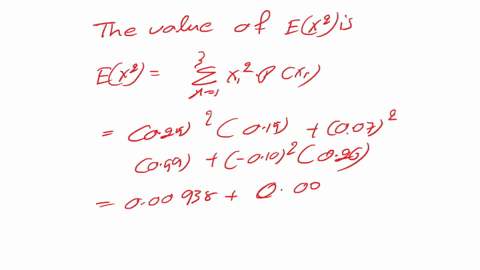 The value of E(x²) is
E(x²) = 3 Σ x=1 xᵢ² . P (xᵢ)
= (0.29)² (0.19) + (0.07)²
(0.49) + (-0.10)² (0.26)
= 0.00938 + 0.00